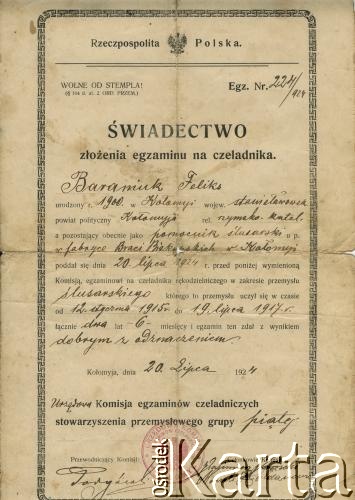 Rzeczpospolita Polska.
WOLNE OD STEMPLA!
(§ 104 d. al. 2 ORD. PRZEM.)
Egz. Nr. 224/924
ŚWIADECTWO
złożenia egzaminu na czeladnika.
Baraniuk Feliks
urodzony r. 1900. w Kołomyi wojew. stanisławowsk.
powiat polityczny Kołomyja rel. rzymsko. katol.
a pozostający obecnie jako pomocnik ślusarski u p.
w fabryce Braci w Kołomyi
poddał się dnia 20 lipca 1924 r. przed poniżej wymienioną
Komisją, egzaminowi na czeladnika rękodzielniczego w zakresie przemysłu
ślusarskiego którego to przemysłu uczył się w czasie
od 12. stycznia 1915 r. do 19. lipca 1917 r.
łącznie dwa lat 6- miesięcy i egzamin ten zdał z wynikiem
dobrym z odznaczeniem.
Kołomyja, dnia 20. Lipca 1924
Urzędowa Komisja egzaminów czeladniczych
stowarzyszenia przemysłowego grupy piątej
Przewodniczący Komisji:
ośrodek
Karta